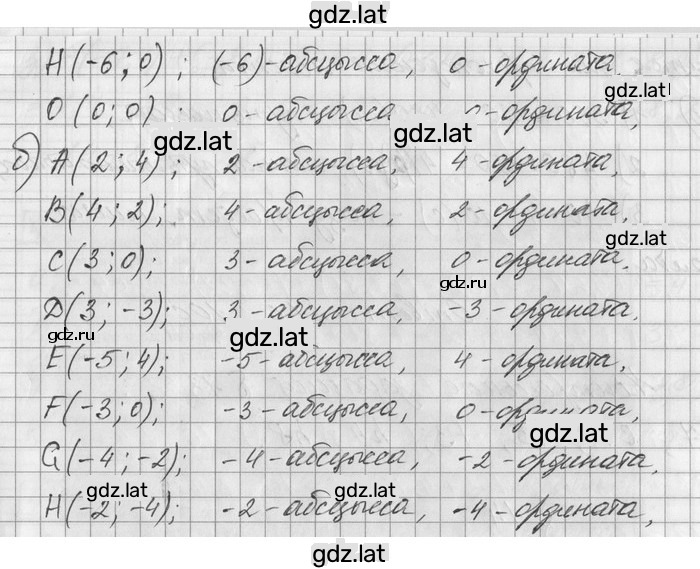 gdz.lat
H(-6; 0); (-6)-абсцысса, 0-ордината
gdz.lat
O(0; 0) 0-абсцысса 0-ордината,
gdz.lat gdz.lat
б) A(2; 4); 2-абсцысса, 4-ордината,
B(4; 2); 4-абсцысса, 2-ордината,
gdz.lat
C(3; 0); 3-абсцысса, 0-ордината,
gdz.ru
D(3; -3); 3-абсцысса, -3-ордината,
gdz.ru gdz.lat
E(-5; 4); -5-абсцысса, 4-ордината,
F(-3; 0); -3-абсцысса, 0-ордината,
gdz.lat
G(-4; -2); -4-абсцысса, -2-ордината,
gdz.lat gdz.lat
H(-2; -4); -2-абсцысса, -4-ордината,
gdz.lat